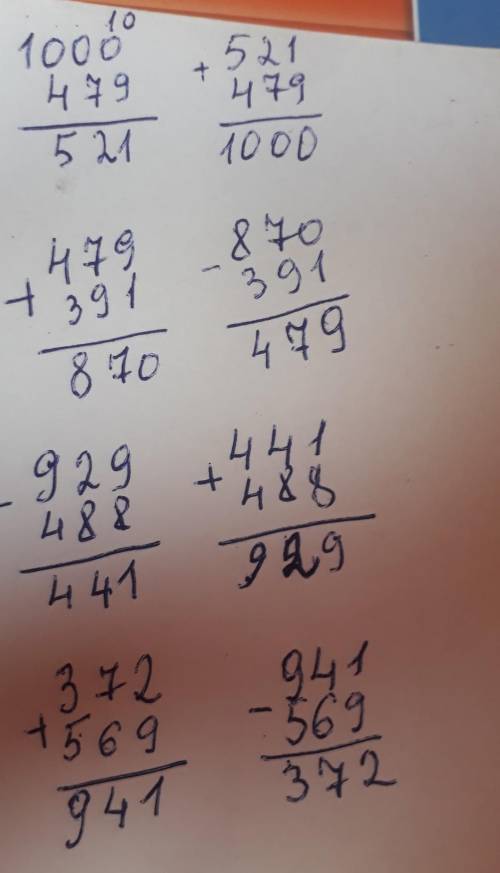 10
1000
479
521
+ 521
479
1000
479
+ 391
870
- 870
391
479
- 929
488
441
441
+ 488
929
372
+ 569
941
941
- 569
372